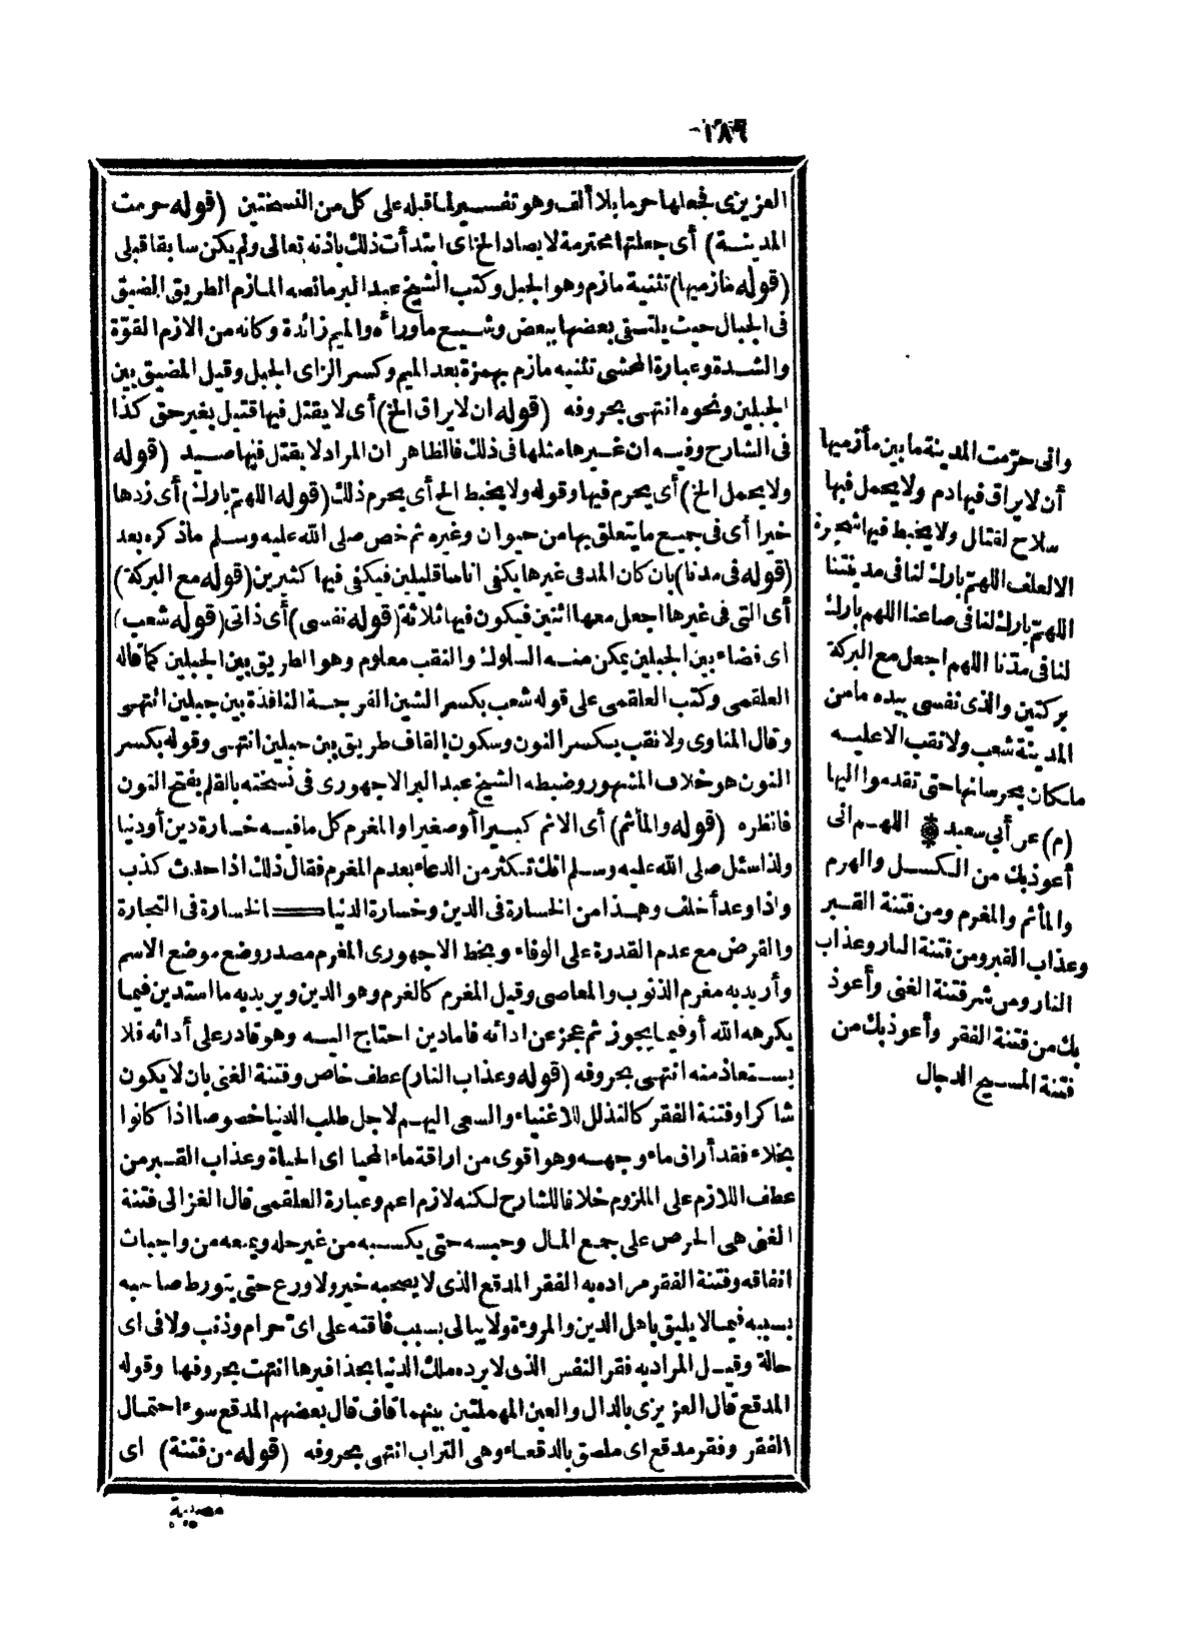 ٢٨٦
العزيزى فجعلها حرما بلا ألف وهو تفسير لما قبله على كل من النسختين (قوله حرمت
المدينة) أى جعلتها محترمة لا يصاد الخ اى ابتدأت ذلك باذنه تعالى ولم يكن سابقا قبلى
(قوله مازميها) تثنية مازم وهو الجبل وكتب الشيخ عبد البر مانصه المازم الطريق المضيق
فى الجبال حيث يلتقى بعضها ببعض ويتسع ماوراءه والميم زائدة وكانه من الازم القوّة
والشدة وعبارة المحشى تثنيه مازم بهمزة بعد الميم وكسر الزاى الجبل وقيل المضيق بين
الجبلين ونحوه انتهى بحروفه (قوله ان لا يراق الخ) أى لا يقتل فيها قتيل بغير حق كذا
فى الشارح وفيه ان غيرها مثلها فى ذلك فالظاهر ان المراد لا يقتل فيها صيد (قوله
ولا يحمل الخ) أى يحرم فيها وقوله ولا يخبط الخ أى يحرم ذلك (قوله اللهمّ بارك) أى زدها
خيرا أى فى جميع ما يتعلق بها من حيوان وغيره ثم خص صلى الله عليه وسلم ماذكره بعد
(قوله فى مدنا) بان كان المد فى غيرها يكفى اناسا قليلين فيكفى فيها كثيرين (قوله مع البركة)
أى التى فى غيرها اجعل معها اثنين فيكون فيها ثلاثة (قوله نفسى) أى ذاتى (قوله شعب)
اى فضاء بين الجبلين يمكن منه السلوك والنقب معلوم وهو الطريق بين الجبلين كما قاله
العلقمى وكتب العلقمى على قوله شعب بكسر الشين الفرجة النافذة بين جبلين انتهى
وقال المناوى ولا نقب بكسر النون وسكون القاف طريق بين جبلين انتهى وقوله بكسر
النون هو خلاف المشهور وضبطه الشيخ عبد البر الاجهورى فى نسخته بالقلم بفتح النون
فانظره (قوله والمأثم) أى الاثم كبيرا أو صغيرا والمغرم كل مافيه خسارة دين أو دنيا
ولذا سئل صلى الله عليه وسلم انك تكثر من الدعاء بعدم المغرم فقال ذلك اذا حدث كذب
واذا وعد أخلف وهذا من الخسارة فى الدين وخسارة الدنيا كالخسارة فى التجارة
والقرض مع عدم القدرة على الوفاء وبخط الاجهورى المغرم مصدر وضع موضع الاسم
وأريد به مغرم الذنوب والمعاصى وقيل المغرم كالغرم وهو الدين ويريد به ما استدين فيما
يكرهه الله أو فيما يجوز ثم عجز عن ادائه فاما دين احتاج اليه وهو قادر على أدائه فلا
يستعاذ منه انتهى بحروفه (قوله وعذاب النار) عطف خاص وفتنة الغنى بان لا يكون
شاكرا وفتنة الفقر كالتذلل للاغنياء والسعى اليهم لاجل طلب الدنيا خصوصا اذا كانوا
بخلاء فقد أراق ماء وجهه وهو اقوى من اراقة ماء المحيا اى الحياة وعذاب القبر من
عطف اللازم على الملزوم خلافا للشارح لكنه لازم اعم وعبارة العلقمى قال الغزالى فتنة
الغنى هى الحرص على جمع المال وحبسه حتى يكسبه من غير حله ويمنعه من واجبات
انفاقه وفتنة الفقر مراده به الفقر المدقع الذى لا يصحبه خير ولا ورع حتى يتورط صاحبه
بسببه فيما لا يليق باهل الدين والمروءة ولا يبالى بسبب فاقته على اىّ حرام وذنب ولا فى اى
حالة وقيل المراد به فقر النفس الذى لا يرده ملك الدنيا بحذافيرها انتهت بحروفها وقوله
المدقع قال العزيزى بالدال والعين المهملتين بينهما قاف قال بعضهم المدقع سوء احتمال
الفقر وفقر مدقع اى ملصق بالدقعاء وهى التراب انتهى بحروفه (قوله من فتنة) اى
مصيبة
وانى حرّمت المدينة مابين مأزميها
أن لا يراق فيها دم ولا يحمل فيها
سلاح لقتال ولا يخبط فيها شجرة
الا لعلف اللهمّ بارك لنا فى مدينتنا
اللهمّ بارك لنا فى صاعنا اللهم بارك
لنا فى مدّنا اللهم اجعل مع البركة
بركتين والذى نفسى بيده مامن
المدينة شعب ولا نقب الا عليه
ملكان يحرسانها حتى تقدموا اليها
(م) عن أبى سعيد * اللهم انى
أعوذ بك من الكسل والهرم
والمأثم والمغرم ومن فتنة القبر
وعذاب القبر ومن فتنة النار وعذاب
النار ومن شر فتنة الغنى وأعوذ
بك من فتنة الفقر وأعوذ بك من
فتنة المسيح الدجال